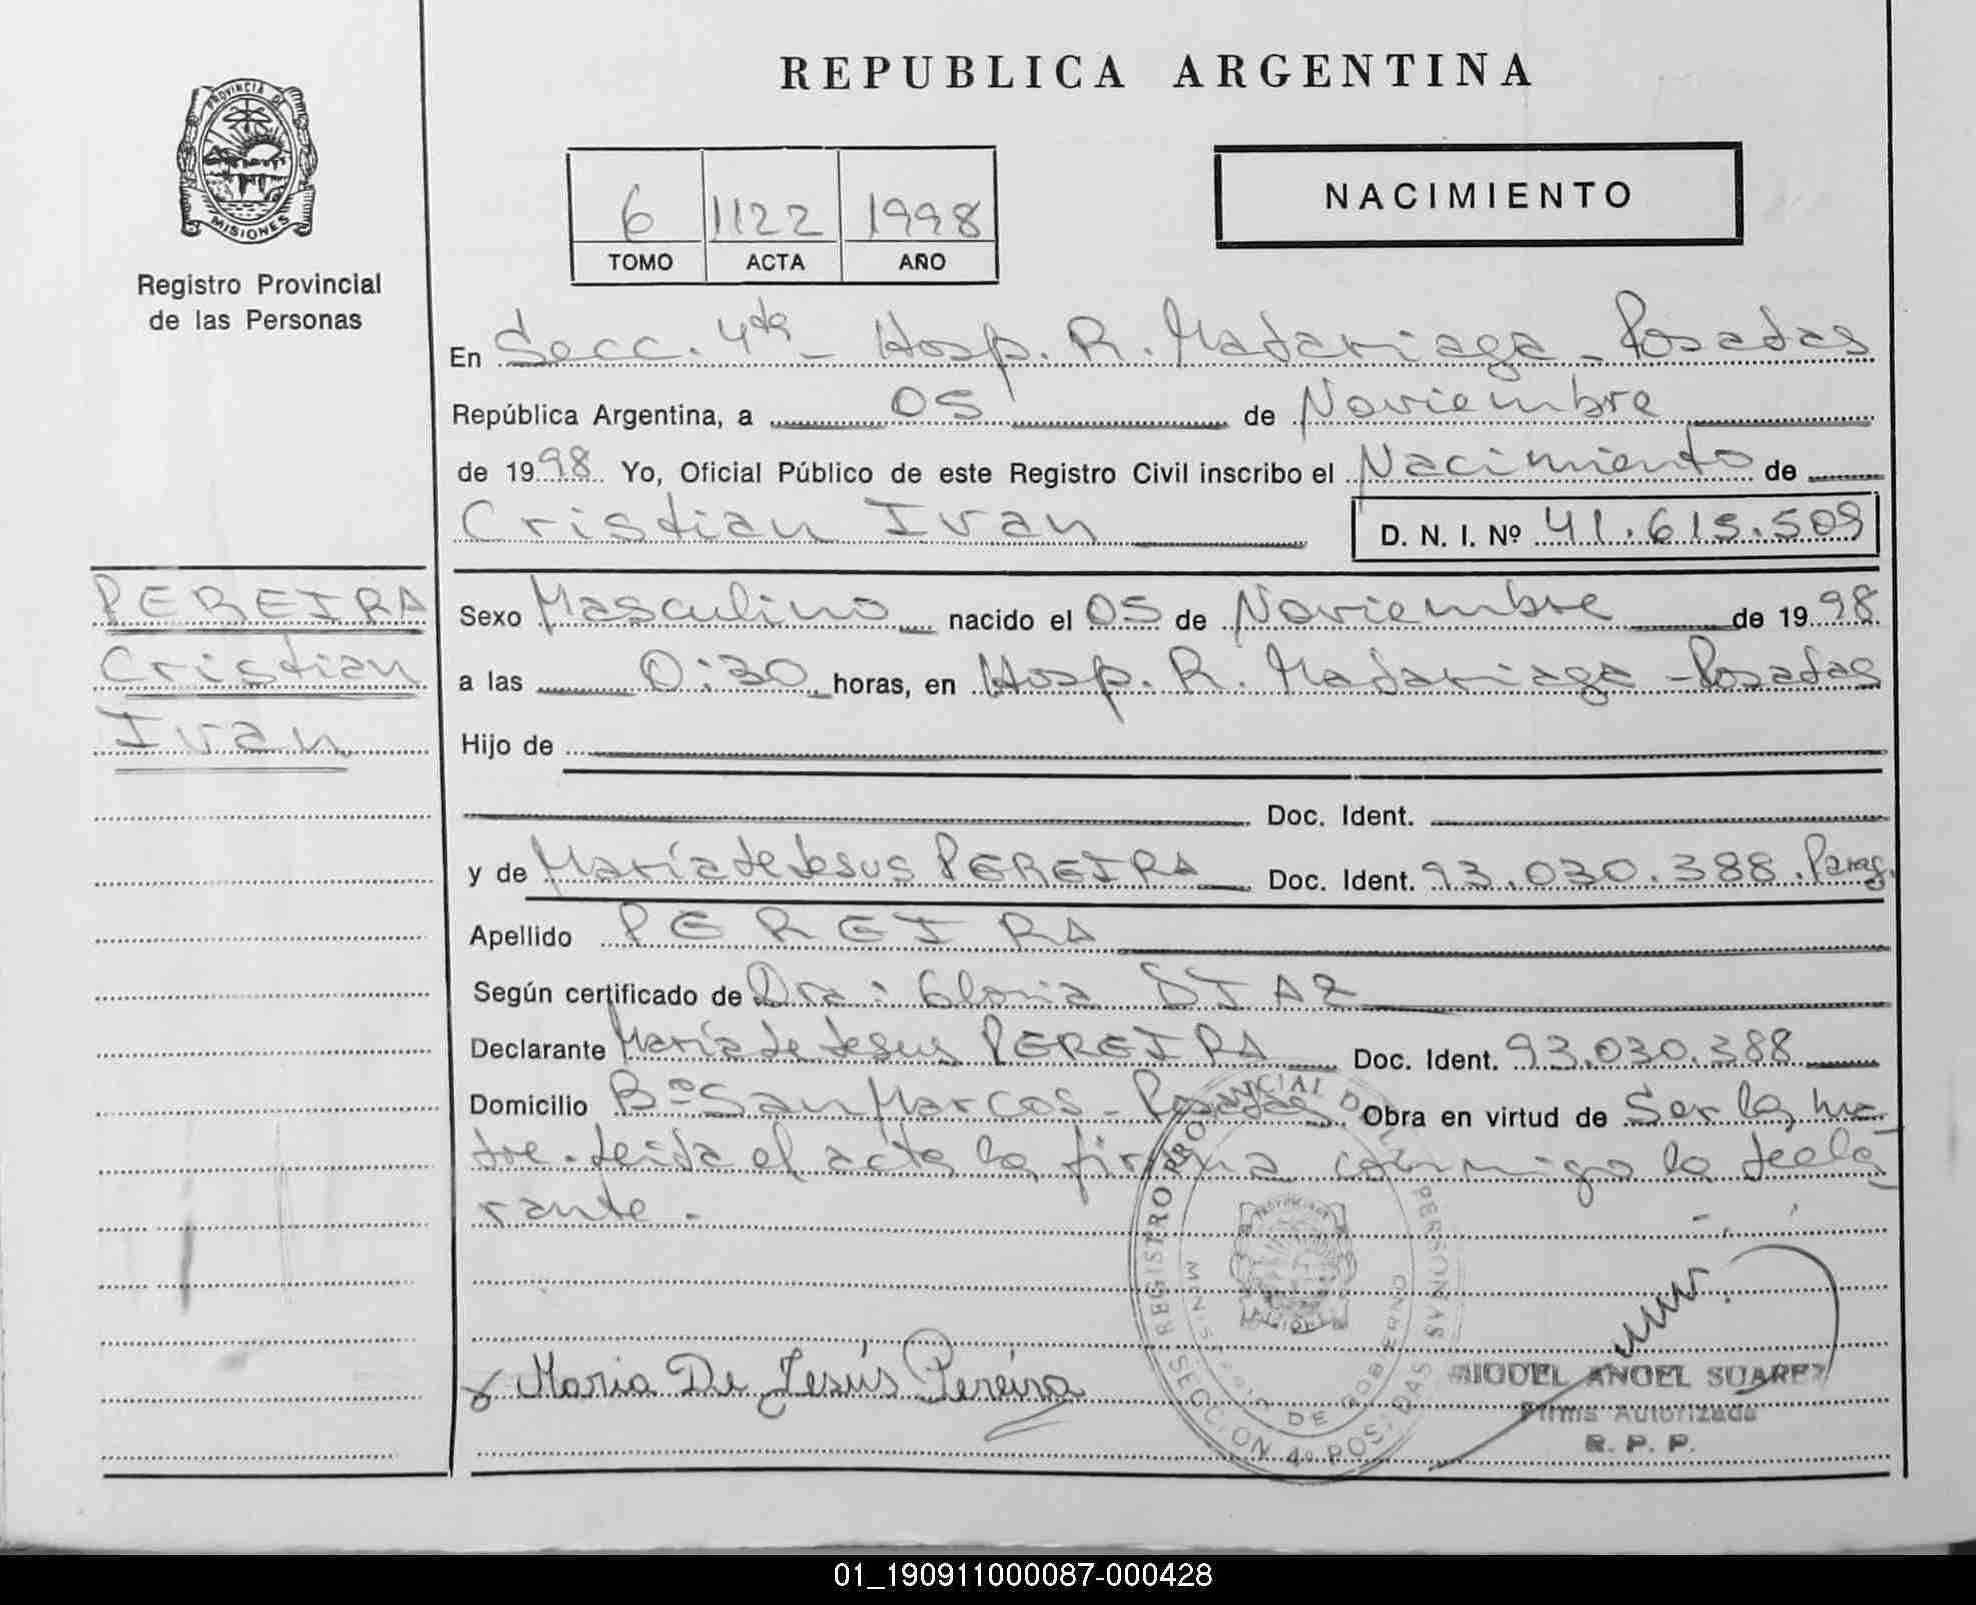 REPUBLICA ARGENTINA
PROVINCIA DE
MISIONES
Registro Provincial
de las Personas
6 1122 1998
TOMO ACTA AÑO
NACIMIENTO
En Secc. 4ta - Hosp. R. Madariaga - Posadas
República Argentina, a 05 de Noviembre
de 1998 Yo, Oficial Público de este Registro Civil inscribo el Nacimiento de
Cristian Ivan D. N. I. Nº 41.615.509
PEREIRA
Cristian
Ivan
Sexo Masculino nacido el 05 de Noviembre de 1998
a las 0:30 horas, en Hosp. R. Madariaga - Posadas
Hijo de
Doc. Ident.
y de María de Jesus PEREIRA Doc. Ident. 93.030.388. Parag.
Apellido PEREIRA
Según certificado de Dra: Gloria DIAZ
Declarante María de Jesus PEREIRA Doc. Ident. 93.030.388
Domicilio Bº San Marcos - Posadas Obra en virtud de Ser la ma
dre. Leida el acta la firma conmigo la decla
rante.
REGISTRO PROVINCIAL DE LAS PERSONAS
MINISTERIO DE GOBIERNO
SECCION 4º POSADAS
Maria De Jesús Pereira
MIGUEL ANGEL SUAREZ
Firma Autorizada
R. P. P.
01_190911000087-000428